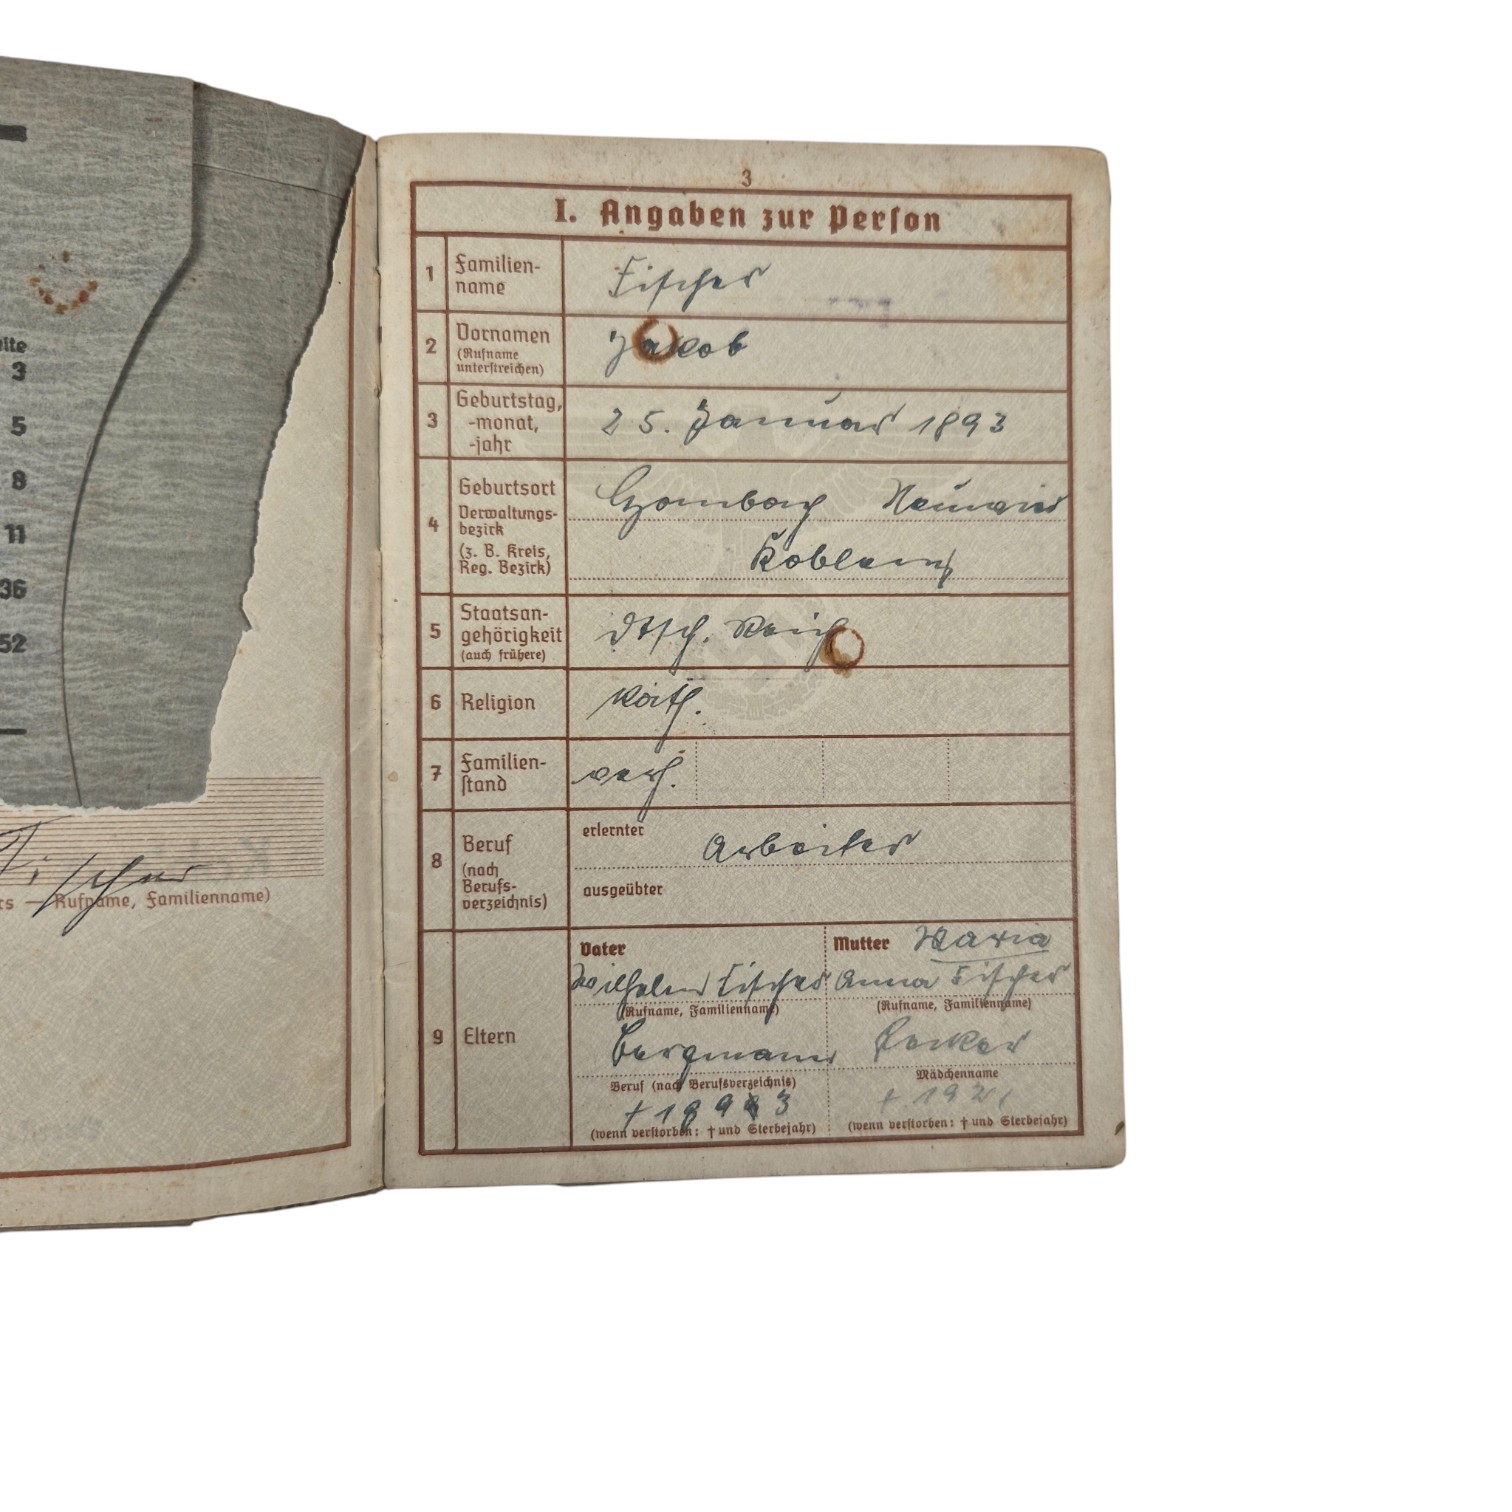 eite
3
5
8
11
36
52
Fischer
rs — Rufname, Familienname)
3
I. Angaben zur Person
1 Familien-
name
Fischer
2 Vornamen
(Rufname
unterstreichen)
Jakob
3 Geburtstag,
-monat,
-jahr
25. Januar 1893
4 Geburtsort
Verwaltungs-
bezirk
(z. B. Kreis,
Reg. Bezirk)
Neuwied
Koblenz
5 Staatsan-
gehörigkeit
(auch frühere)
Dtsch. Reich
6 Religion
kath.
7 Familien-
stand
verh.
8 Beruf
(nach
Berufs-
verzeichnis)
erlernter
Arbeiter
ausgeübter
9 Eltern
Vater
Wilhelm Fischer
(Rufname, Familienname)
Bergmann
Beruf (nach Berufsverzeichnis)
(wenn verstorben: † und Sterbejahr)
Mutter Maria
Anna Fischer
(Rufname, Familienname)
Mädchenname
(wenn verstorben: † und Sterbejahr)